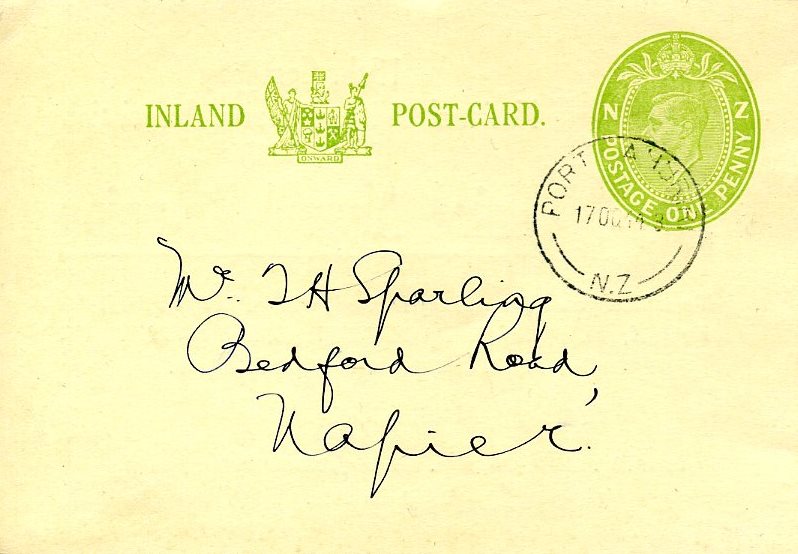 INLAND POST-CARD.
ONWARD
N Z
POSTAGE ONE PENNY
PORT
17 OC
N.Z
Mr. T H Sparling
Bedford Road,
Napier.